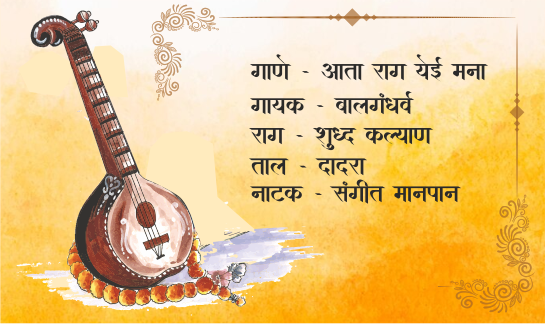 गाणे - आता राग येई मना
गायक - वालगंधर्व
राग - शुध्द कल्याण
ताल - दादरा
नाटक - संगीत मानपान